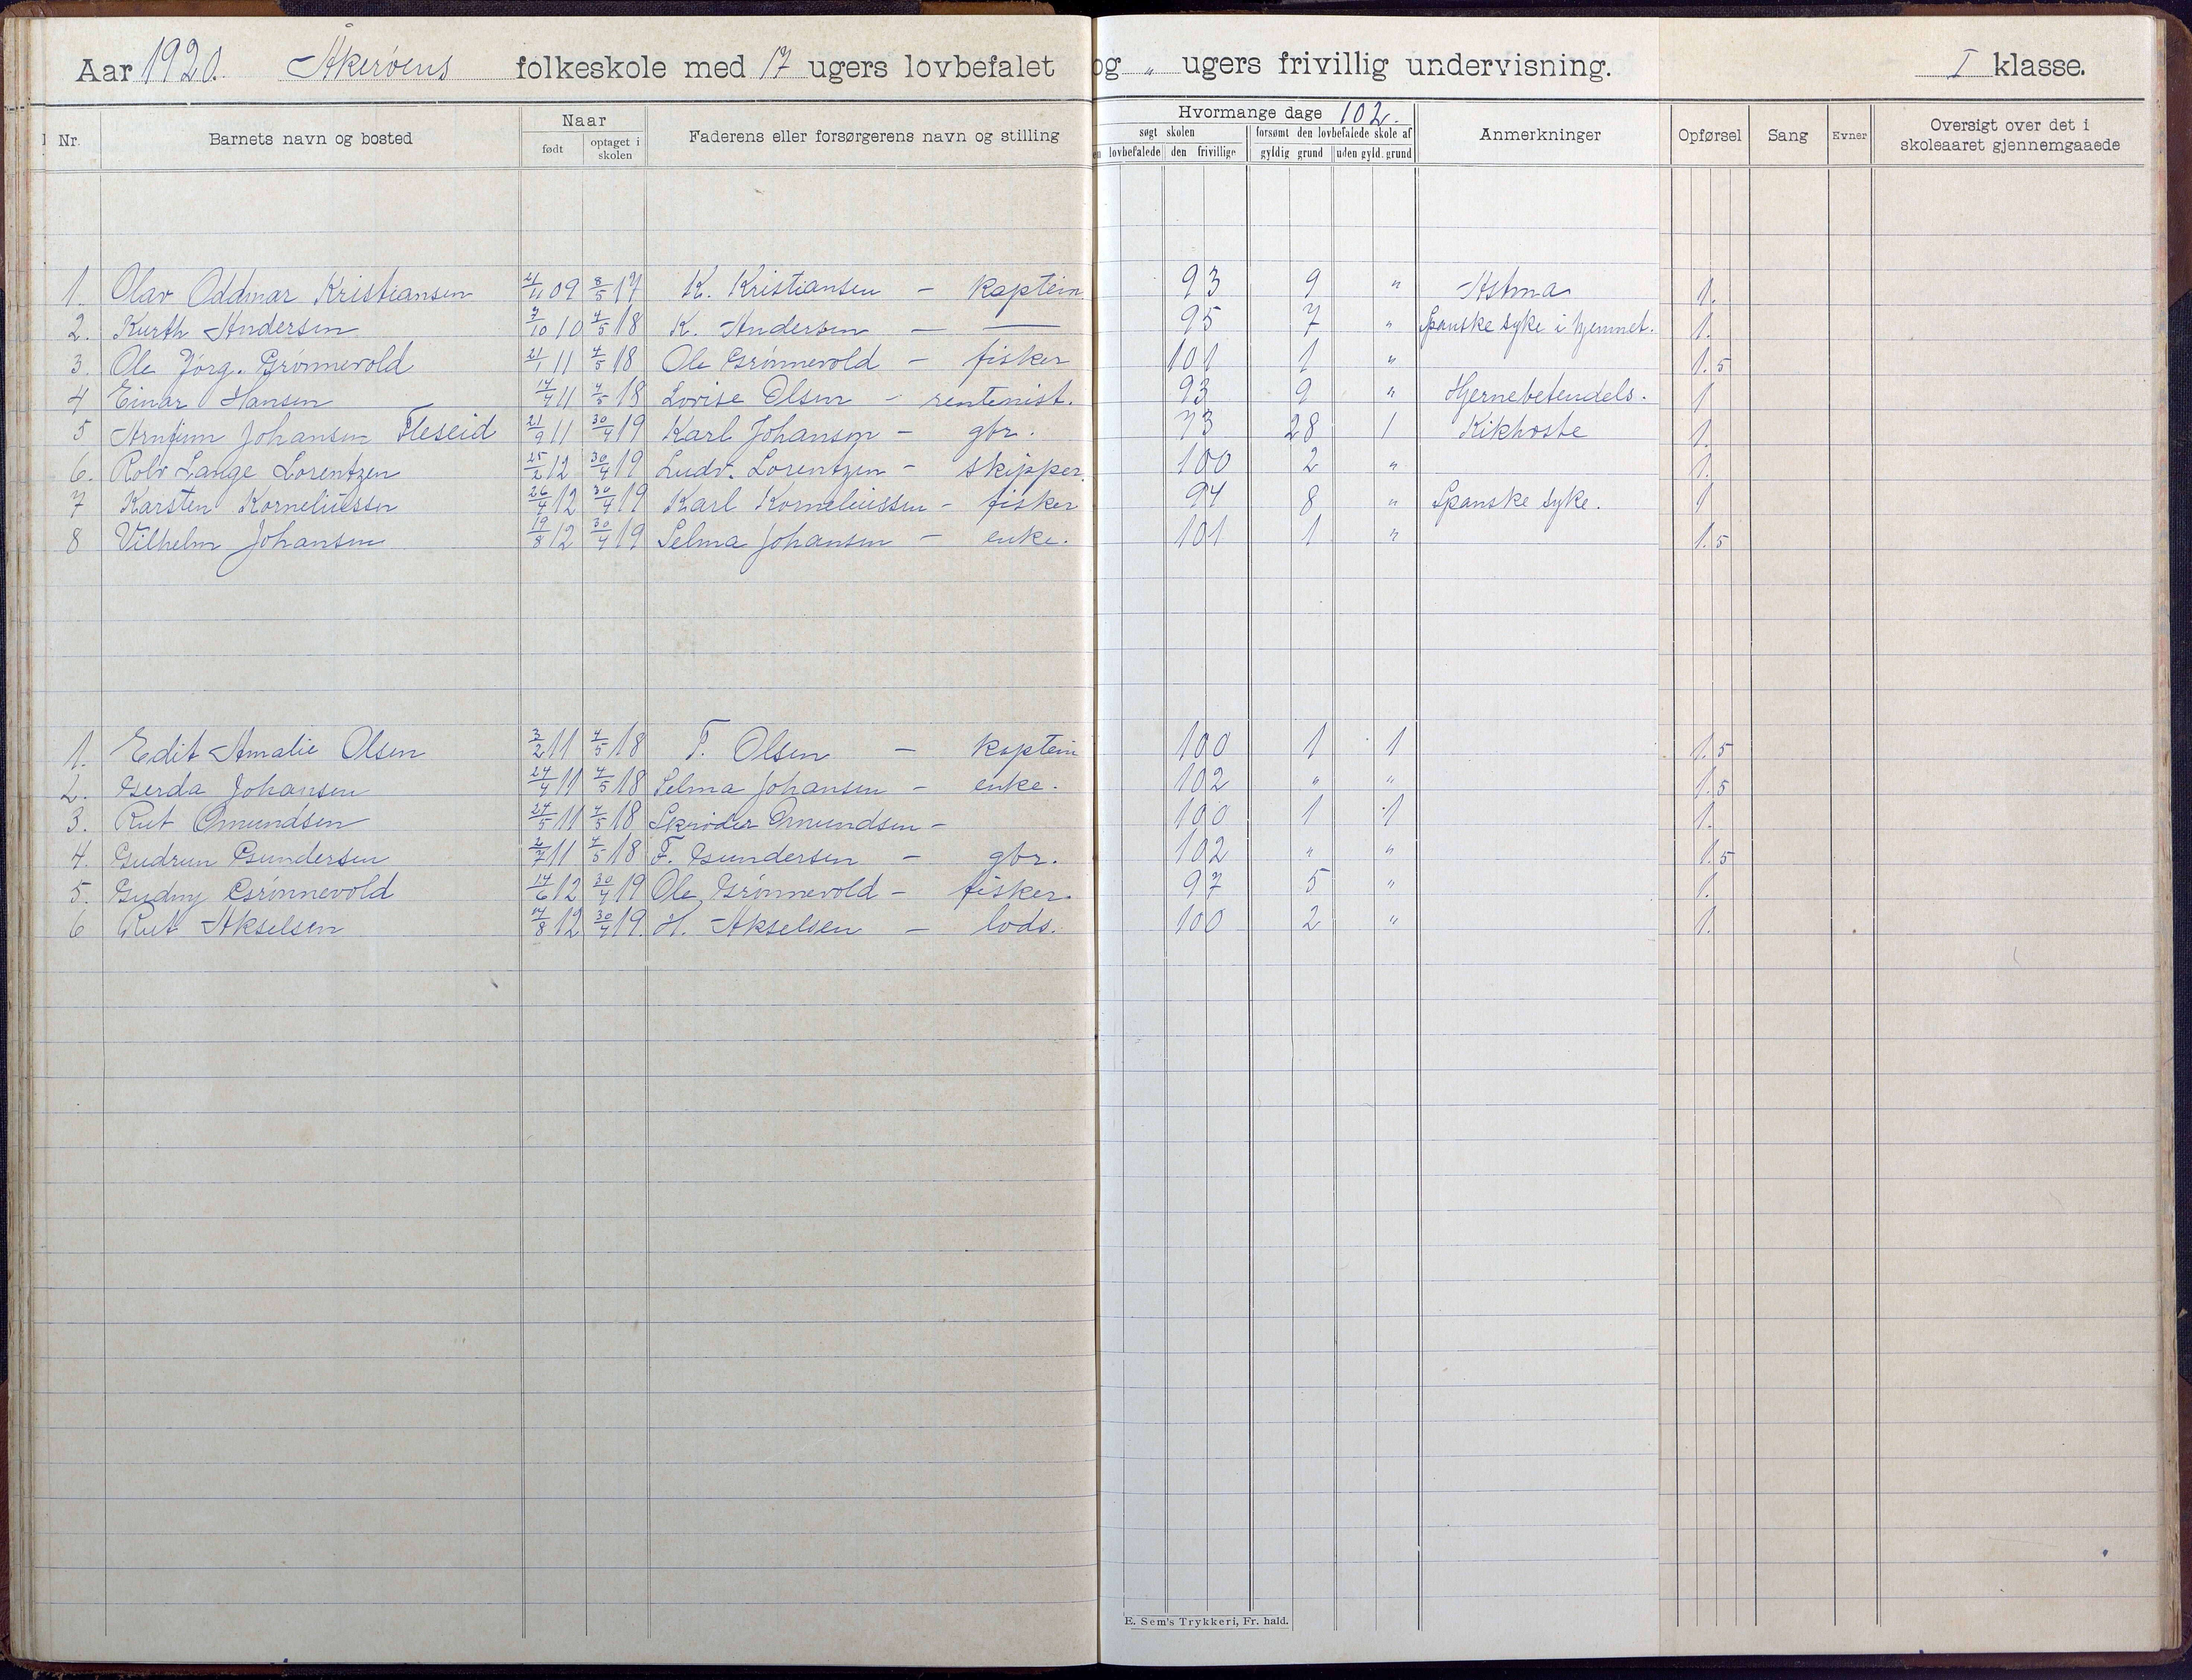 Aar 1920. Åkerøens folkeskole med 17 ugers lovbefalet og „ ugers frivillig undervisning. I klasse.
Nr. Barnets navn og bosted Naar født optaget i skolen Faderens eller forsørgerens navn og stilling Hvormange dage 102. søgt skolen lovbefalede den frivillige forsømt den lovbefalede skole af gyldig grund uden gyld. grund Anmerkninger Opførsel Sang Evner Oversigt over det i skoleaaret gjennemgaaede
1. Olav Oddmar Kristiansen 4/11 09 8/5 17 K. Kristiansen – kaptein 93 9 „ Astma 1.
2. Kurth Andersen 7/10 10 4/5 18 K. Andersen – — 95 7 „ Spanske syke i hjemmet. 1.
3. Ole Jørg. Grønnevold 21/1 11 4/5 18 Ole Grønnevold – fisker 101 1 „ 1.5
4 Einar Hansen 14/4 11 4/5 18 Lovise Olsen – rentenist. 93 9 „ Hjernebetendels. 1
5 Arnfinn Johansen Fleseid 21/9 11 30/4 19 Karl Johansen – gbr. 73 28 1 Kikhoste 1.
6. Rolv Lange Lorentzen 25/2 12 30/4 19 Ludv. Lorentzen – skipper. 100 2 „ 1.
7 Karsten Korneliussen 26/4 12 30/4 19 Karl Korneliussen – fisker 94 8 „ Spanske syke. 1
8 Vilhelm Johansen 19/8 12 30/4 19 Selma Johansen – enke. 101 1 „ 1.5
1. Edit Amalie Olsen 3/2 11 4/5 18 T. Olsen – kaptein 100 1 1 1.5
2. Gerda Johansen 24/4 11 4/5 18 Selma Johansen – enke. 102 „ „ 1.5
3. Rut Omundsen 24/5 11 4/5 18 Skrøder Omundsen – 100 1 1 1.
4. Gudrun Gundersen 2/7 11 4/5 18 F. Gundersen – gbr. 102 „ „ 1.5
5. Gudny Grønnevold 14/6 12 30/4 19 Ole Grønnevold – fisker. 97 5 „ 1.
6 Rut Akselsen 14/8 12 30/4 19. H. Akselsen – lods. 100 2 „ 1.
E. Sem's Trykkeri, Fr. hald.